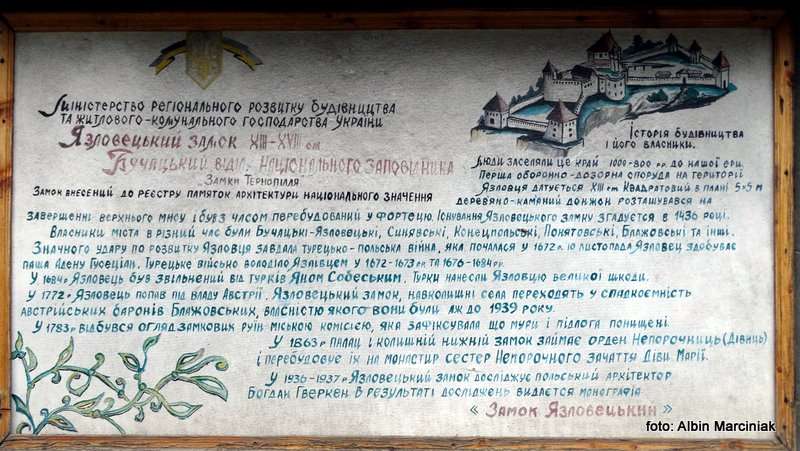 Міністерство регіонального розвитку будівництва
та житлового-комунального господарства України
Язловецький замок XIII-XVII ст
Бучацький відділ Національного заповідника
„Замки Тернопілля"
Замок внесений до реєстру памяток архітектури національного значення
Історія будівництва
і його власники.
Люди заселяли це край 1000-800 рр. до нашої ери.
Перша оборонно-дозорна споруда на території
Язловця датується XIII ст Квадратовий в плані 5×5 м
деревяно-камяний донжон розташувався на
завершенні верхнього мису і був з часом перебудований у фортецю Існування Язловецького замку згадується в 1436 році.
Власники міста в різний час були Бучацькі-Язловецькі, Синявські, Конецпольські, Понятовські, Блажовські та інші.
Значного удару по розвитку Язловця завдала турецько-польська війна, яка почалася у 1672 р. 10 листопада Язловец здобуває
паша Адену Гусеціан. Турецьке військо володіло Язлівцем у 1672-1673 рр. та 1676-1684 рр.
У 1684 р Язловець був звільнений від турків Яном Собеським. Турки нанесли Язловцю великої шкоди.
У 1772 р Язловець попав під владу Австрії. Язловецький замок, навколишні села переходять у спадкоємність
австрійських баронів Блажовських, власністю якого вони були аж до 1939 року.
У 1783 р відбувся огляд замкових руїн міською комісією, яка зафіксувала що мури і підлога понищені.
У 1863 р палац і колишній нижній замок займає орден Непорочниць (Дівиць)
і перебудовує їх на монастир сестер Непорочного Зачаття Діви Марії.
У 1936-1937 р Язловецький замок досліджує польський архітектор
Богдан Гверкен В результаті досліджень видається монографія
« Замок Язловецький »
foto: Albin Marciniak